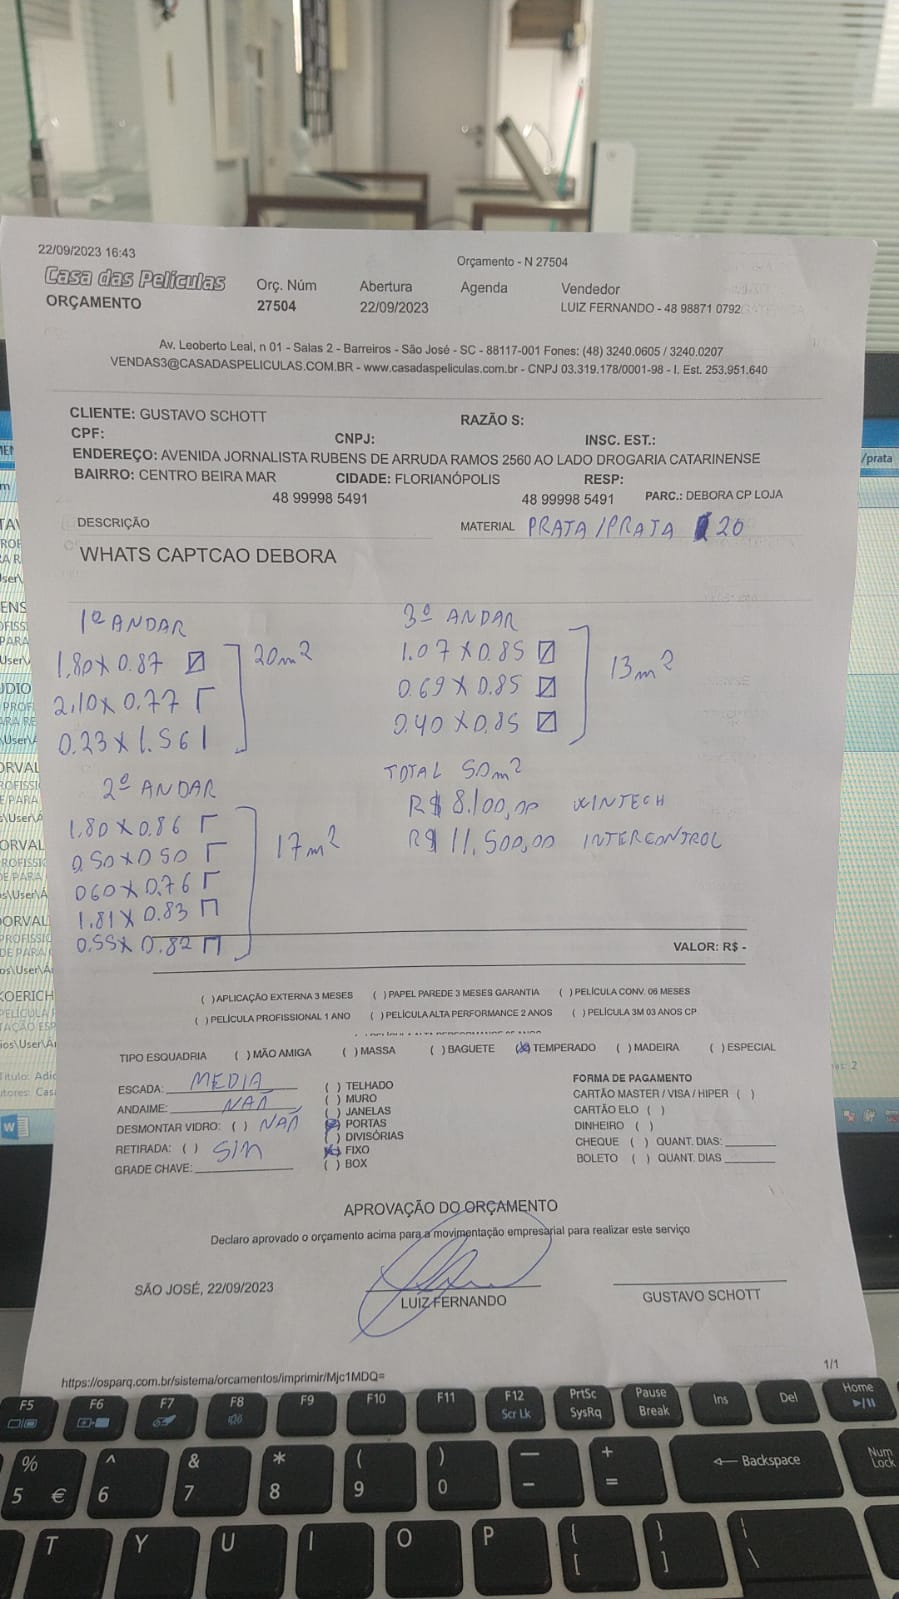 22/09/2023 16:43
Orçamento - N 27504
Casa das Películas
ORÇAMENTO
Orç. Núm
27504
Abertura
22/09/2023
Agenda
Vendedor
LUIZ FERNANDO - 48 98871 0792
Av. Leoberto Leal, n 01 - Salas 2 - Barreiros - São José - SC - 88117-001 Fones: (48) 3240.0605 / 3240.0207
VENDAS3@CASADASPELICULAS.COM.BR - www.casadaspeliculas.com.br - CNPJ 03.319.178/0001-98 - I. Est. 253.951.640
CLIENTE: GUSTAVO SCHOTT RAZÃO S:
CPF: CNPJ: INSC. EST.:
ENDEREÇO: AVENIDA JORNALISTA RUBENS DE ARRUDA RAMOS 2560 AO LADO DROGARIA CATARINENSE
BAIRRO: CENTRO BEIRA MAR CIDADE: FLORIANÓPOLIS RESP:
48 99998 5491 48 99998 5491 PARC.: DEBORA CP LOJA
DESCRIÇÃO MATERIAL PRATA/PRATA 20
WHATS CAPTCAO DEBORA
1º ANDAR
1.80 X 0.87
2.10 X 0.77
0.23 X 1.56
20m²
2º ANDAR
1.80 X 0.86
0.50 X 0.50
060 X 0.76
1.81 X 0.83
0.55X 0.82
17m²
3º ANDAR
1.07 X 0.85
0.69 X 0.85
0.40 X 0.85
13m²
TOTAL 50m²
R$ 8.100,00 WINTECH
R$ 11.500,00 INTERCONTROL
VALOR: R$ -
( ) APLICAÇÃO EXTERNA 3 MESES ( ) PAPEL PAREDE 3 MESES GARANTIA ( ) PELÍCULA CONV. 06 MESES
( ) PELÍCULA PROFISSIONAL 1 ANO ( ) PELÍCULA ALTA PERFORMANCE 2 ANOS ( ) PELÍCULA 3M 03 ANOS CP
TIPO ESQUADRIA ( ) MÃO AMIGA ( ) MASSA ( ) BAGUETE (X) TEMPERADO ( ) MADEIRA ( ) ESPECIAL
ESCADA: MEDIA
ANDAIME: NAÕ
DESMONTAR VIDRO: ( ) NAÕ
RETIRADA: ( ) SIM
GRADE CHAVE:
( ) TELHADO
( ) MURO
( ) JANELAS
(X) PORTAS
( ) DIVISÓRIAS
(X) FIXO
( ) BOX
FORMA DE PAGAMENTO
CARTÃO MASTER / VISA / HIPER ( )
CARTÃO ELO ( )
DINHEIRO ( )
CHEQUE ( ) QUANT. DIAS:
BOLETO ( ) QUANT. DIAS
APROVAÇÃO DO ORÇAMENTO
Declaro aprovado o orçamento acima para a movimentação empresarial para realizar este serviço
SÃO JOSÉ, 22/09/2023
LUIZ FERNANDO
GUSTAVO SCHOTT
1/1
https://osparq.com.br/sistema/orcamentos/imprimir/Mjc1MDQ=
F5 F6 F7 F8 F9 F10 F11 F12 Scr Lk PrtSc SysRq Pause Break Ins Del Home
% 5 € ^ 6 & 7 * 8 ( 9 ) 0 — - + = Backspace Num Lock
T Y U I O P { [ } ] | \